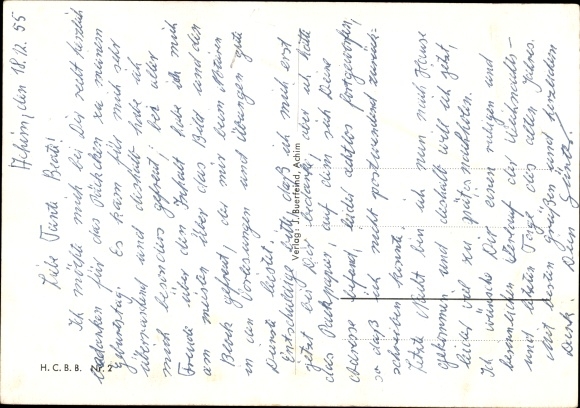 Achim, den 18.12.55
Liebe Tante Berti!
Ich möchte mich bei Dir recht herzlich
bedanken für das Päckchen zu meinem
Geburtstag. Es kam für mich sehr
überraschend und deshalb habe ich
mich besonders gefreut; bei aller
Freude über den Inhalt habe ich mich
am meisten über das Bild und den
Block gefreut, der mir beim
in den Vorlesungen und Übungen gute
Dienste leistet.
Entschuldige bitte, daß ich mich erst
jetzt bei Dir bedanke, aber ich hatte
das Packpapier, auf dem sich Deine
Adresse befand, leider achtlos fortgeworfen,
so daß ich nicht postwendend zurück-
schreiben konnte.
Letzte Nacht bin ich nun nach Hause
gekommen und deshalb will ich jetzt,
leider viel zu spät, nachholen.
Ich wünsche Dir einen ruhigen und
besinnlichen Verlauf der Weihnachts-
und letzten Tage des alten Jahres.
Mit besten Grüßen und herzlichem
Dank, Dein Günther.
Verlag: J. Buerfeind, Achim
H. C. B. B.